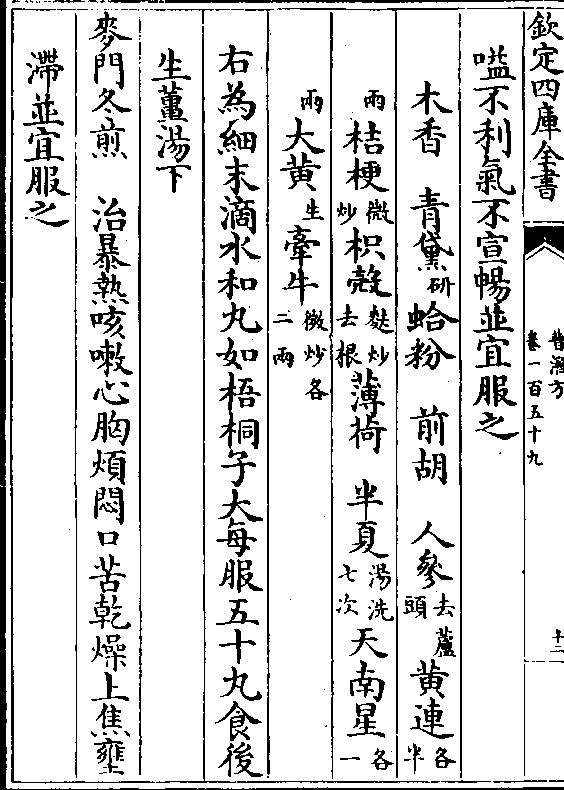 欽定四庫全書
普濟方
卷一百五十九
十二
嗌不利氣不宣暢並宜服之
木香 青黛研 蛤粉 前胡 人參去蘆頭 黄連各半
兩 桔梗微炒 枳殻麩炒去根 薄荷 半夏湯洗七次 天南星各一
兩 大黄生 牽牛微炒各二兩
右為細末滴水和丸如梧桐子大每服五十丸食後
生薑湯下
麥門冬煎 治暴熱咳嗽心胸煩悶口苦乾燥上焦壅
滯並宜服之